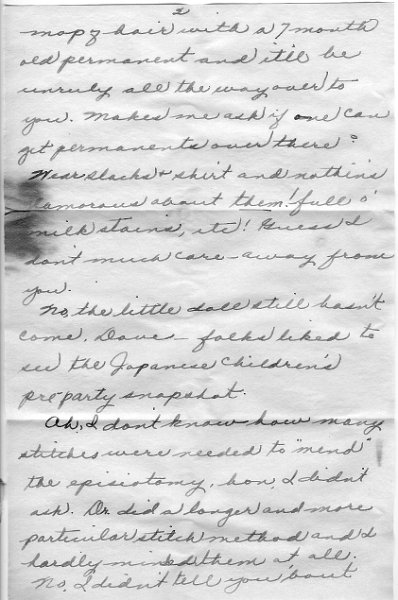 2
mop of hair with a 7 month
old permanent and it'll be
unruly all the way over to
you. Makes me ask if one can
get permanents over there?
Wear slacks & shirt and nothin's
lamorous about them! full o'
milk stains, etc! Guess I
don't much care - away from
you.
No, the little doll still hasn't
come, Dave - folks liked to
see the Japanese children's
pre-party snapshot.
Ah, I don't know how many
stitches were needed to "mend"
the episiotomy, hon, I didn't
ask. Dr. did a longer and more
particular stitch method and I
hardly minded them at all.
No, I didn't tell you 'bout